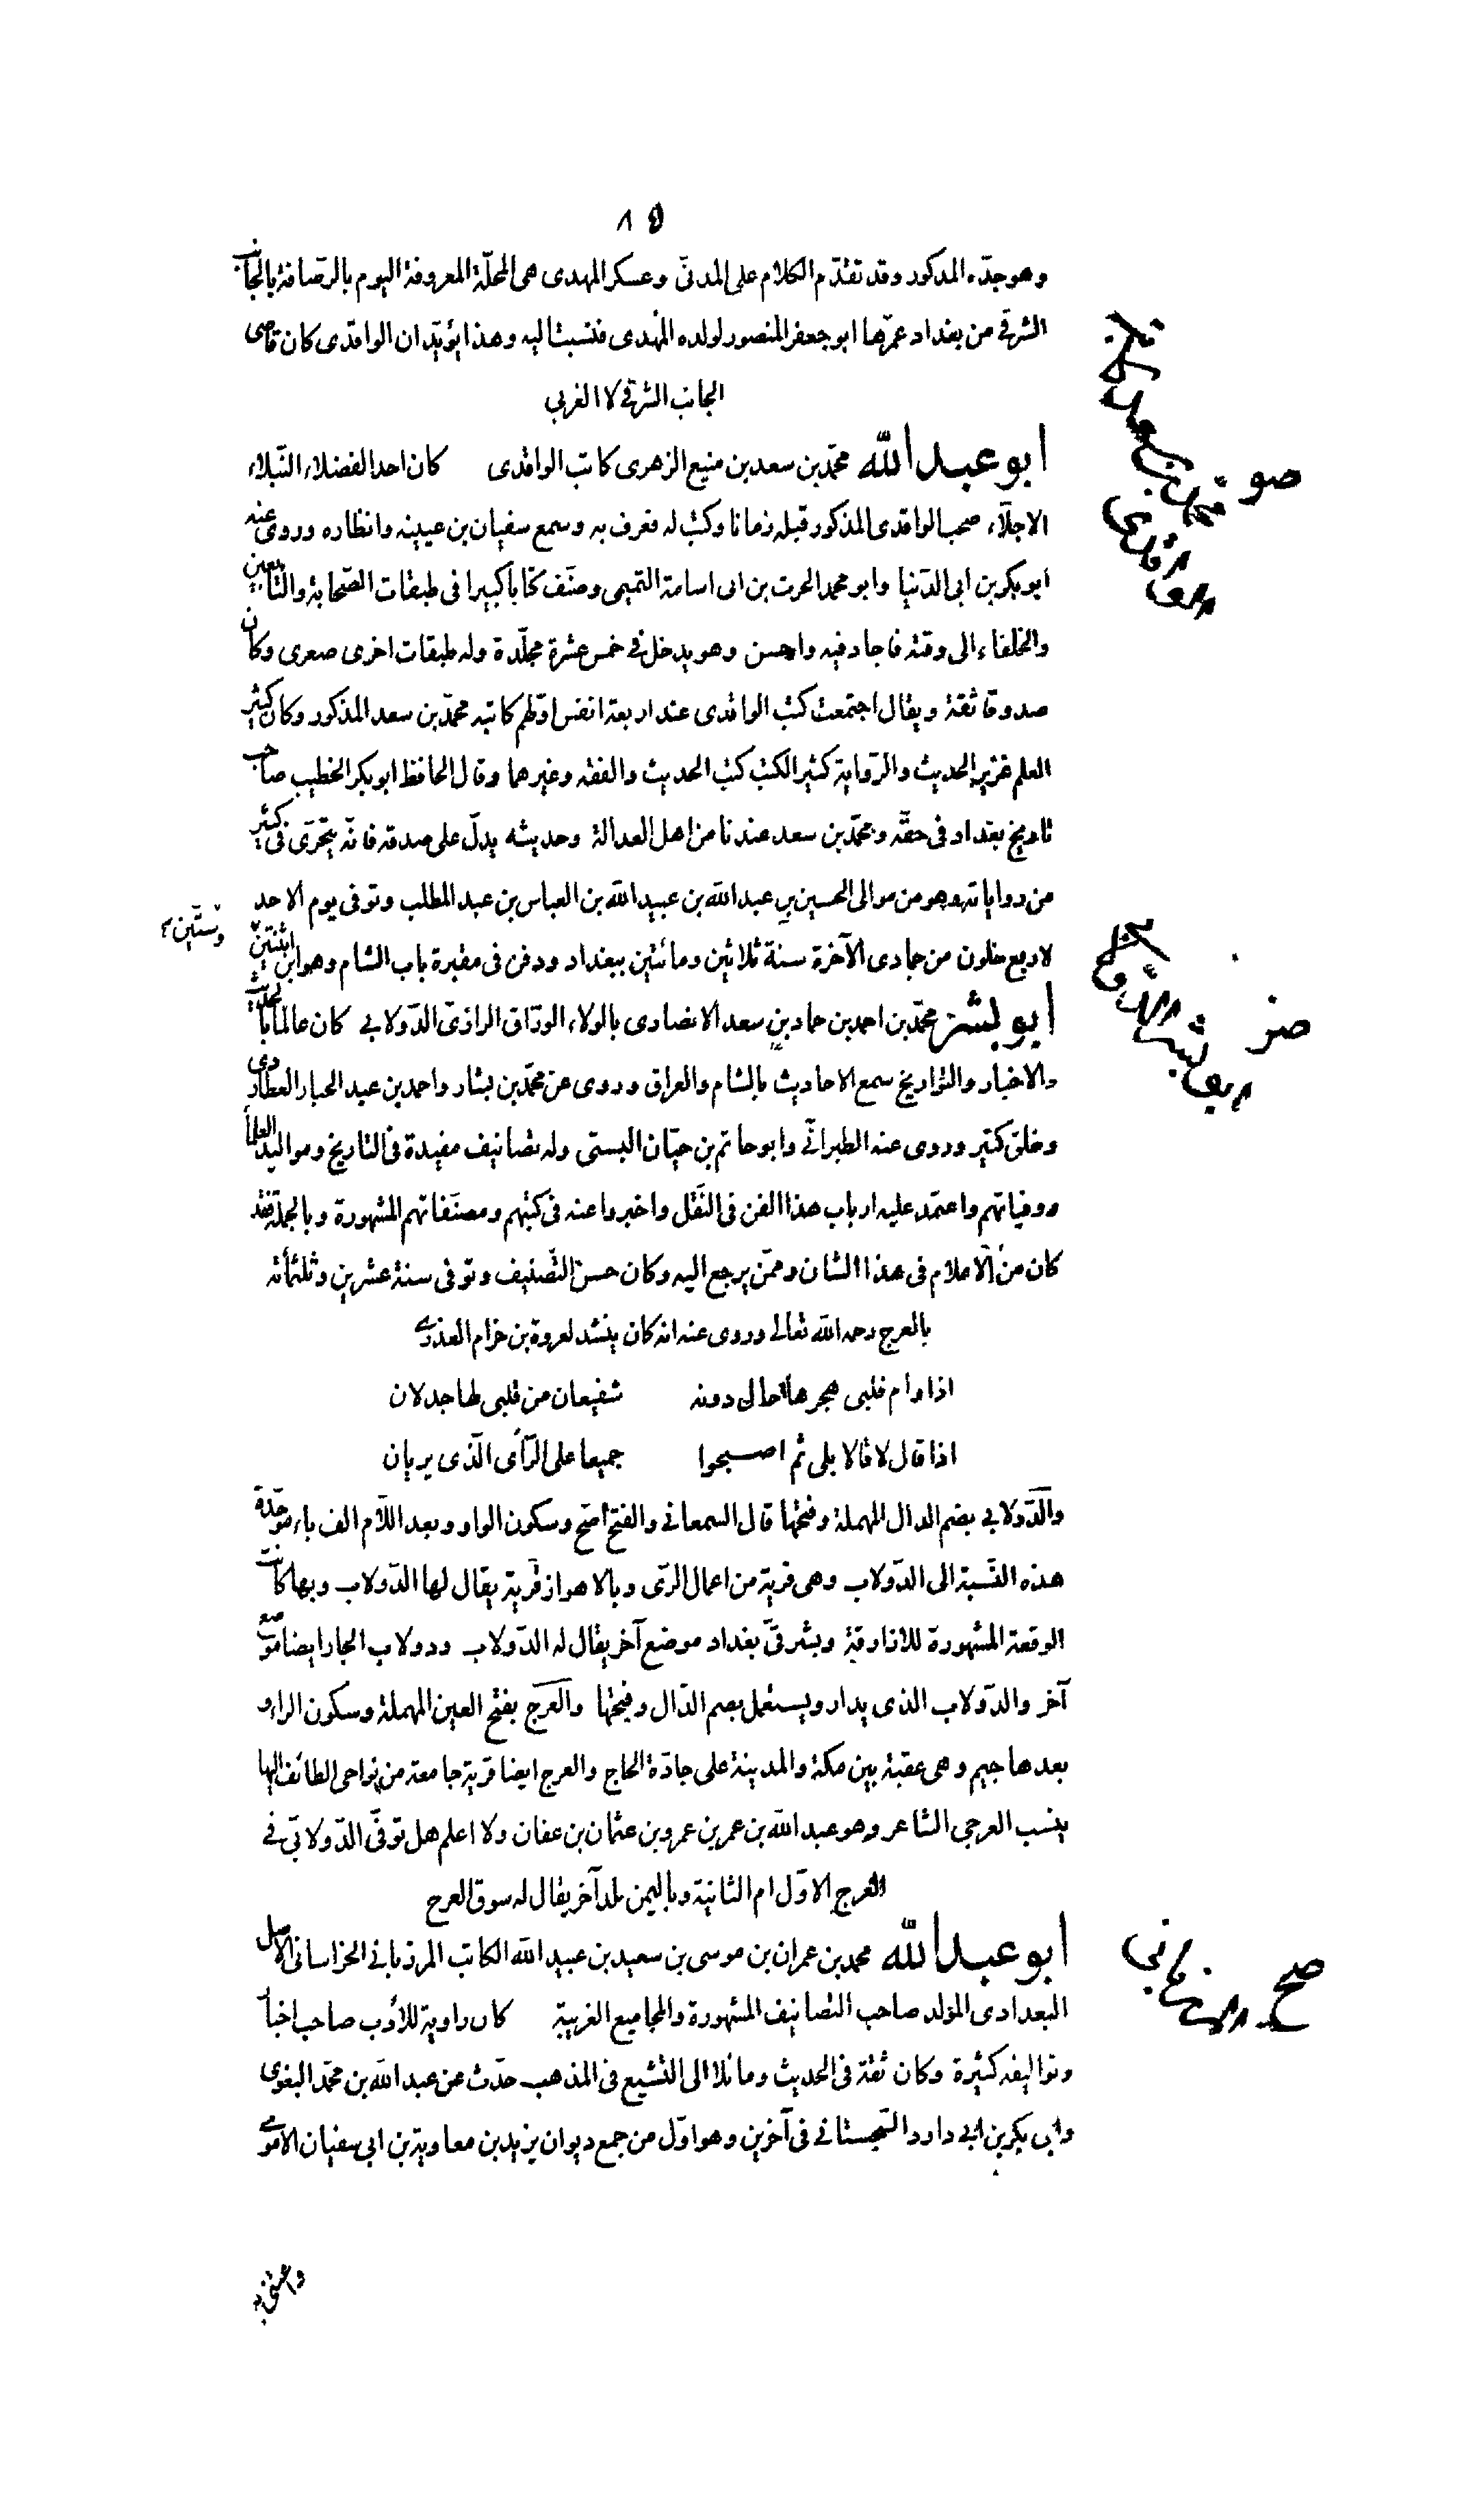 ٨٥
وهو جدّه المذكور وقد تقدّم الكلام على المدنىّ وعسكر المهدى هى المحلّة المعروفة اليوم بالرّصافة بالجانب
الشرقى من بغداد عمّرها ابو جعفر المنصور لولده المهدى فنسبت اليه وهذا يؤيّد ان الواقدى كان قاضى
الجانب الشرقى لا الغربى
ابو عبد الله محمّد بن سعد بن منيع الزهرى كاتب الواقدى كان احد الفضلاء النّبلاء
الاجلّاء صحب الواقدى المذكور قبله زمانا وكتب له فعرف به وسمع سفيان بن عيينه وانظاره وروى عنه
ابو بكر بن ابى الدّنيا وابو محمد الحرث بن ابى اسامة التميمى وصنّف كتابا كبيرا فى طبقات الصّحابة والتّابعين
والخلفاء الى وقته فاجاد فيه واحسن وهو يدخل فى خمس عشرة مجلّدة وله طبقات اخرى صغرى وكان
صدوقا ثقة ويقال اجتمعت كتب الواقدى عند اربعة انفس اوّلهم كاتبه محمّد بن سعد المذكور وكان كثير
العلم غزير الحديث والرّواية كثير الكتب كتب الحديث والفقه وغيرهما وقال الحافظ ابو بكر الخطيب صاحب
تاريخ بغداد فى حقّه ومحمّد بن سعد عندنا من اهل العدالة وحديثه يدلّ على صدقه فانّه يتحرّى فى كثير
من رواياته وهو من موالى الحسين بن عبد الله بن عبيد الله بن العباس بن عبد المطلب وتوفى يوم الاحد
لاربع خلون من جمادى الآخرة سنة ثلاثين ومائتين ببغداد ودفن فى مقبرة باب الشام وهو ابن اثنتين
وستّين
ابو بشر محمّد بن احمد بن حماد بن سعد الانصارى بالولاء الورّاق الرازى الدّولابى كان عالما بالحديث
والاخبار والتّواريخ سمع الاحاديث بالشام والعراق وروى عن محمّد بن بشار واحمد بن عبد الجبار العطاردى
وخلق كثير وروى عنه الطبرانى وابو حاتم بن حبّان البستى وله تصانيف مفيدة فى التاريخ ومواليد العلماء
ووفياتهم واعتمد عليه ارباب هذا الفن فى النّقل واخبروا عنه فى كتبهم ومصنّفاتهم المشهورة وبالجملة فقد
كان من الاعلام فى هذا الشان وممّن يرجع اليه وكان حسن التّصنيف وتوفى سنة عشرين وثلثمائه
بالعرج رحمه الله تعالى وروى عنه انه كان ينشد لعروة بن حزام العذرى
اذا رام قلبى هجرها حال دونه شفيعان من قلبى لها جدلان
اذا قال لا قالا بلى ثم اصبحوا جميعا على الرّأى الّذى يريان
والدّولابى بضم الدال المهملة وفتحها قال السمعانى والفتح اصحّ وسكون الواو وبعد اللّام الف باء موحّدة
هذه النّسبة الى الدّولاب وهى قرية من اعمال الرّى وبالاهواز قرية يقال لها الدّولاب وبها كانت
الوقعة المشهورة للازارقة وبشرقىّ بغداد موضع آخر يقال له الدّولاب ودولاب الجار ايضا موضع
آخر والدّولاب الذى يدار ويستعمل بضم الدّال وفتحها والعرج بفتح العين المهملة وسكون الراء و
بعدها جيم وهى عقبة بين مكة والمدينة على جادّة الحاج والعرج ايضا قرية جامعة من نواحى الطائف اليها
ينسب العرجى الشاعر وهو عبد الله بن عمر بن عمرو بن عثمان بن عفان ولا اعلم هل توفّى الدّولابى فى
العرج الاوّل ام الثانية وباليمن بلد آخر يقال له سوق العرج
ابو عبد الله محمد بن عمران بن موسى بن سعيد بن عبيد الله الكاتب المرزبانى الخراسانى الاصل
البغدادى المولد صاحب التصانيف المشهورة والمجاميع الغريبة كان راوية للأدب صاحب اخبار
وتواليفه كثيرة وكان ثقة فى الحديث ومائلا الى التشيع فى المذهب حدّث عن عبد الله بن محمّد البغوى
وابى بكر بن ابى داود السّجستانى فى آخرين وهو اوّل من جمع ديوان يزيد بن معاوية بن ابى سفيان الاموى
واعتنى به
صو
صز
ابو بشر
صح
المرزبانى